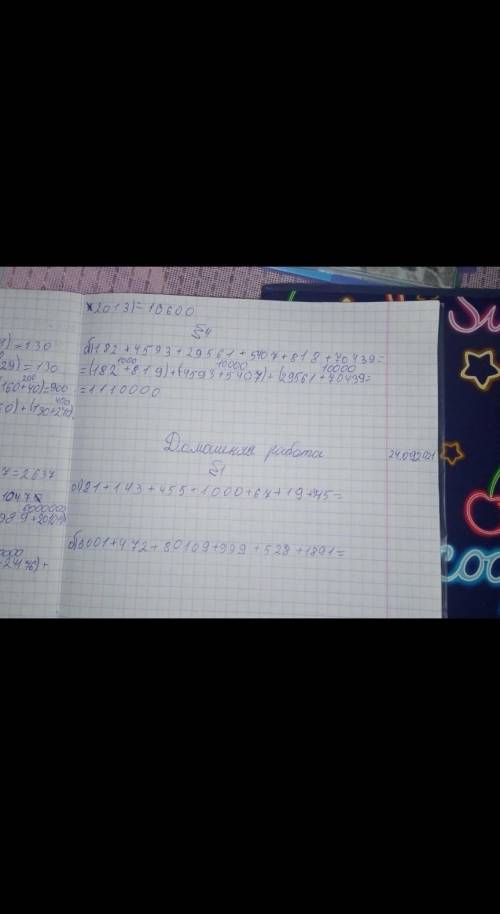 х2013)=10600
§4
б)182+4593+29561+5407+818+70439=
1000 10000 10000
=(182+819)+(4593+5407)+(29561+70439=
=1110000
Домашняя работа
24.092021
§1
а)21+143+455+1000+67+19+45=
б)8001+472+80109+999+528+1891=
)=130
29)=130
200
160+40)=900
400
0)+(130+270)
7=2637
1047
0000000
989+20101)
0000
+24176)+